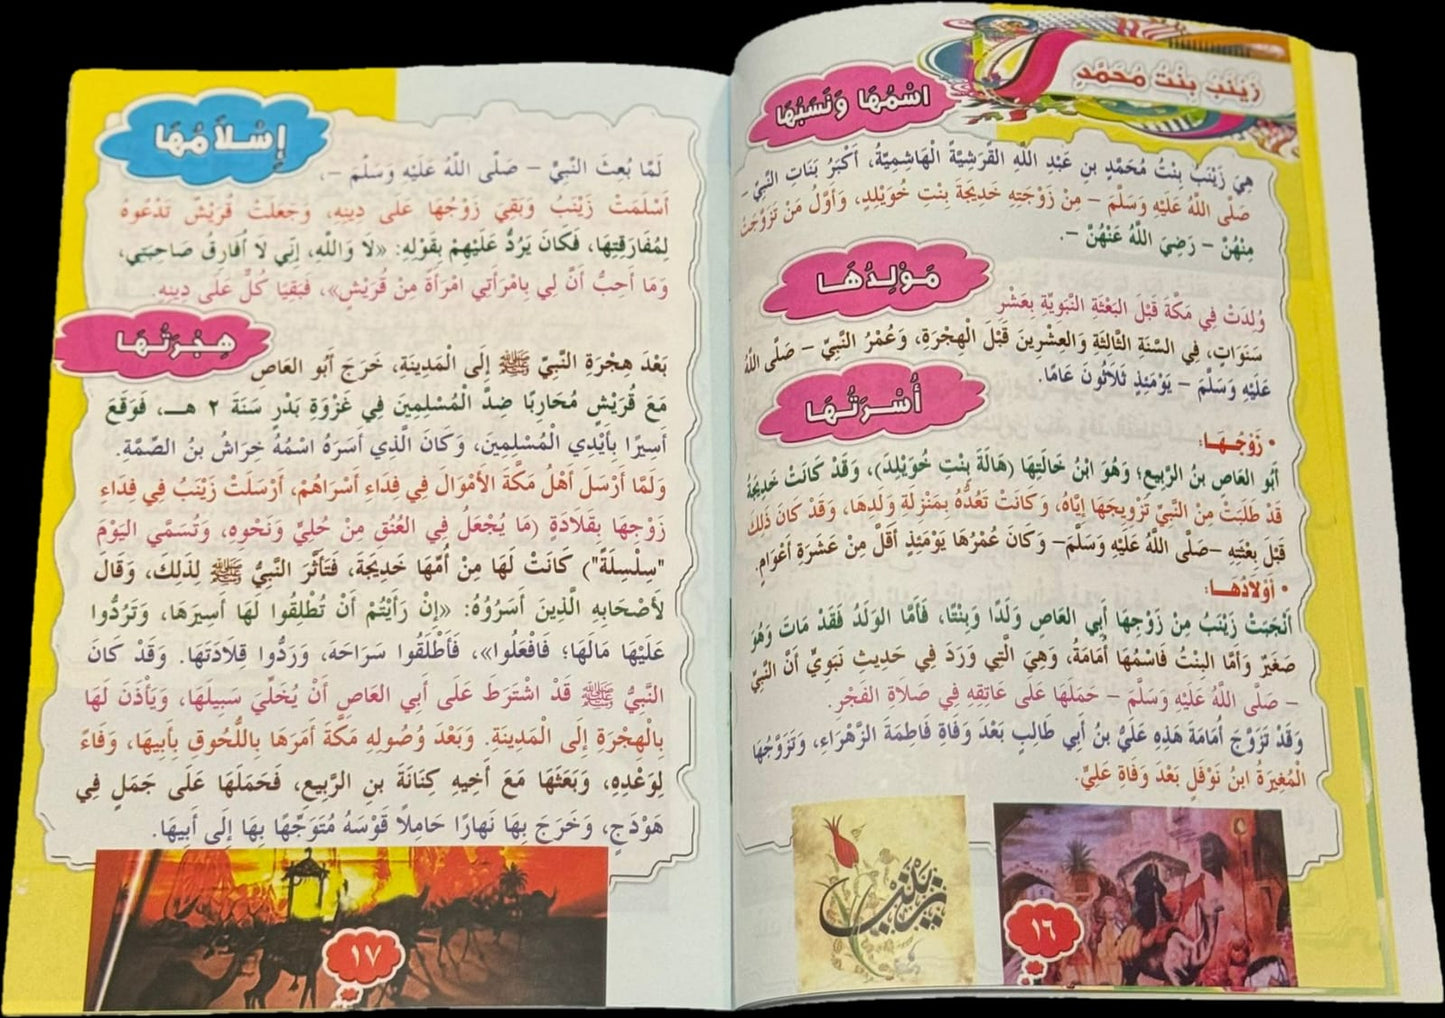 زَيْنَبُ بِنْتُ مُحَمَّدٍ
اسْمُهَا وَنَسَبُهَا
هِيَ زَيْنَبُ بِنْتُ مُحَمَّدِ بنِ عَبْدِ اللَّهِ القُرَشِيَّةُ الْهَاشِمِيَّةُ، أَكْبَرُ بَنَاتِ النَّبِيِّ –
صَلَّى اللَّهُ عَلَيْهِ وَسَلَّمَ – مِنْ زَوْجَتِهِ خَدِيجَةَ بِنْتِ خُوَيْلِدٍ، وَأَوَّلُ مَنْ تَزَوَّجَتْ
مِنْهُنَّ – رَضِيَ اللَّهُ عَنْهُنَّ –.
مَوْلِدُهَا
وُلِدَتْ فِي مَكَّةَ قَبْلَ البَعْثَةِ النَّبَوِيَّةِ بِعَشْرِ
سَنَوَاتٍ، فِي السَّنَةِ الثَّالِثَةِ وَالعِشْرِينَ قَبْلَ الْهِجْرَةِ، وَعُمْرُ النَّبِيِّ – صَلَّى اللَّهُ
عَلَيْهِ وَسَلَّمَ – يَوْمَئِذٍ ثَلَاثُونَ عَامًا.
أُسْرَتُهَا
• زَوْجُهَا:
أَبُو العَاصِ بنُ الرَّبِيعِ؛ وَهُوَ ابْنُ خَالَتِهَا (هَالَةَ بِنْتِ خُوَيْلِدَ)، وَقَدْ كَانَتْ خَدِيجَةُ
قَدْ طَلَبَتْ مِنَ النَّبِيِّ تَزْوِيجَهَا إِيَّاهُ، وَكَانَتْ تَعُدُّهُ بِمَنْزِلَةِ وَلَدِهَا، وَقَدْ كَانَ ذَلِكَ
قَبْلَ بِعْثَتِهِ –صَلَّى اللَّهُ عَلَيْهِ وَسَلَّمَ– وَكَانَ عُمْرُهَا يَوْمَئِذٍ أَقَلَّ مِنْ عَشَرَةِ أَعْوَامٍ.
• أَوْلَادُهَا:
أَنْجَبَتْ زَيْنَبُ مِنْ زَوْجِهَا أَبِي العَاصِ وَلَدًا وَبِنْتًا، فَأَمَّا الوَلَدُ فَقَدْ مَاتَ وَهُوَ
صَغِيرٌ وَأَمَّا البِنْتُ فَاسْمُهَا أُمَامَةُ، وَهِيَ الَّتِي وَرَدَ فِي حَدِيثٍ نَبَوِيٍّ أَنَّ النَّبِيَّ
– صَلَّى اللَّهُ عَلَيْهِ وَسَلَّمَ – حَمَلَهَا عَلَى عَاتِقِهِ فِي صَلَاةِ الفَجْرِ.
وَقَدْ تَزَوَّجَ أُمَامَةَ هَذِهِ عَلِيُّ بنُ أَبِي طَالِبٍ بَعْدَ وَفَاةِ فَاطِمَةَ الزَّهْرَاءِ، وَتَزَوَّجُهَا
الْمُغِيرَةُ ابنُ نَوْفَلٍ بَعْدَ وَفَاةِ عَلِيٍّ.
زينب
١٦
إِسْلَامُهَا
لَمَّا بُعِثَ النَّبِيُّ – صَلَّى اللَّهُ عَلَيْهِ وَسَلَّمَ –،
أَسْلَمَتْ زَيْنَبُ وَبَقِيَ زَوْجُهَا عَلَى دِينِهِ، وَجَعَلَتْ قُرَيْشٌ تَدْعُوهُ
لِمُفَارَقَتِهَا، فَكَانَ يَرُدُّ عَلَيْهِمْ بِقَوْلِهِ: «لَا وَاللَّهِ، إِنِّي لَا أُفَارِقُ صَاحِبَتِي،
وَمَا أُحِبُّ أَنَّ لِي بِامْرَأَتِي امْرَأَةً مِنْ قُرَيْشٍ»، فَبَقِيَا كُلٌّ عَلَى دِينِهِ.
هِجْرَتُهَا
بَعْدَ هِجْرَةِ النَّبِيِّ ﷺ إِلَى الْمَدِينَةِ، خَرَجَ أَبُو العَاصِ
مَعَ قُرَيْشٍ مُحَارِبًا ضِدَّ الْمُسْلِمِينَ فِي غَزْوَةِ بَدْرٍ سَنَةَ ٢ هـ، فَوَقَعَ
أَسِيرًا بِأَيْدِي الْمُسْلِمِينَ، وَكَانَ الَّذِي أَسَرَهُ اسْمُهُ خِرَاشُ بنُ الصِّمَّةِ.
وَلَمَّا أَرْسَلَ أَهْلُ مَكَّةَ الأَمْوَالَ فِي فِدَاءِ أَسْرَاهُمْ، أَرْسَلَتْ زَيْنَبُ فِي فِدَاءِ
زَوْجِهَا بِقَلَادَةٍ (مَا يُجْعَلُ فِي العُنُقِ مِنْ حُلِيٍّ وَنَحْوِهِ، وَتُسَمَّى اليَوْمَ
"سِلْسِلَةً") كَانَتْ لَهَا مِنْ أُمِّهَا خَدِيجَةَ، فَتَأَثَّرَ النَّبِيُّ ﷺ لِذَلِكَ، وَقَالَ
لأَصْحَابِهِ الَّذِينَ أَسَرُوهُ: «إِنْ رَأَيْتُمْ أَنْ تُطْلِقُوا لَهَا أَسِيرَهَا، وَتَرُدُّوا
عَلَيْهَا مَالَهَا؛ فَافْعَلُوا»، فَأَطْلَقُوا سَرَاحَهَ، وَرَدُّوا قِلَادَتَهَا. وَقَدْ كَانَ
النَّبِيُّ ﷺ قَدْ اشْتَرَطَ عَلَى أَبِي العَاصِ أَنْ يُخَلِّيَ سَبِيلَهَا، وَيَأْذَنَ لَهَا
بِالْهِجْرَةِ إِلَى الْمَدِينَةِ. وَبَعْدَ وُصُولِهِ مَكَّةَ أَمَرَهَا بِاللُّحُوقِ بِأَبِيهَا، وَفَاءً
لِوَعْدِهِ، وَبَعَثَهَا مَعَ أَخِيهِ كِنَانَةَ بنِ الرَّبِيعِ، فَحَمَلَهَا عَلَى جَمَلٍ فِي
هَوْدَجٍ، وَخَرَجَ بِهَا نَهَارًا حَامِلًا قَوْسَهُ مُتَوَجِّهًا بِهَا إِلَى أَبِيهَا.
١٧